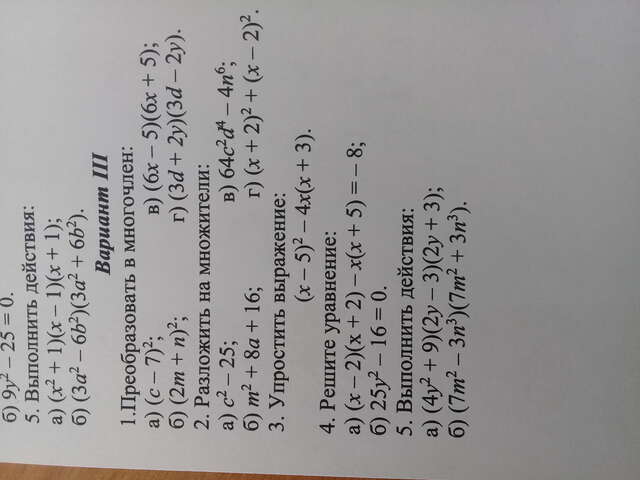 б) 9y² – 25 = 0.
5. Выполнить действия:
а) (x² + 1)(x – 1)(x + 1);
б) (3a² – 6b²)(3a² + 6b²).
Вариант III
1.Преобразовать в многочлен:
а) (c – 7)²; в) (6x – 5)(6x + 5);
б) (2m + n)²; г) (3d + 2y)(3d – 2y).
2. Разложить на множители:
а) c² – 25; в) 64c²d⁴ – 4n⁶;
б) m² + 8a + 16; г) (x + 2)² + (x – 2)².
3. Упростить выражение:
(x – 5)² – 4x(x + 3).
4. Решите уравнение:
а) (x – 2)(x + 2) – x(x + 5) = – 8;
б) 25y² – 16 = 0.
5. Выполнить действия:
а) (4y² + 9)(2y – 3)(2y + 3);
б) (7m² – 3n³)(7m² + 3n³).